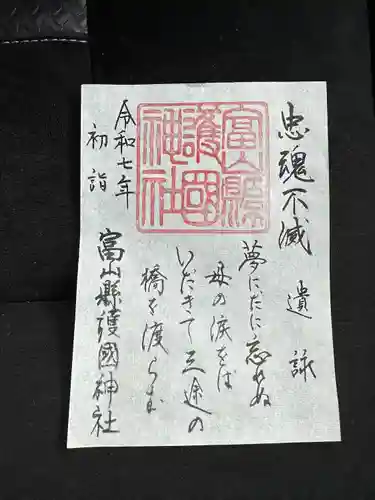 忠魂不滅
遺詠
夢にだに忘れぬ
母の涙をば
いだきて三途の
橋を渡らむ
富山縣護國神社
令和七年
初詣
富山縣護國神社